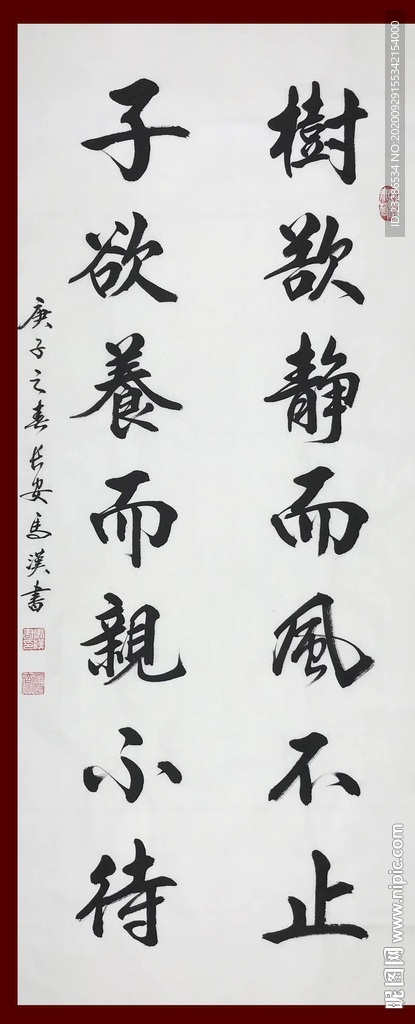 樹欲静而風不止
子欲養而親不待
庚子之春長安馬漢書
ID:23286534 NO:20200929155342154000
昵图网 www.nipic.com